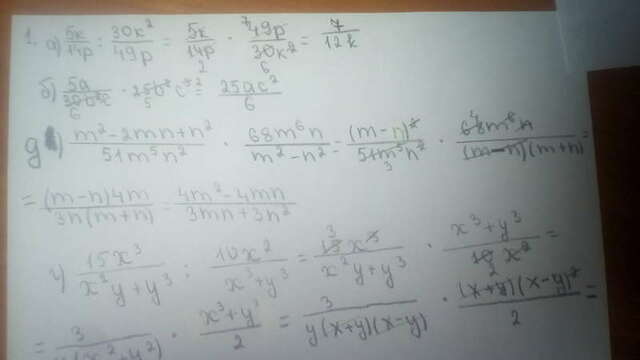 1. а) 5k/14p : 30k²/49p = 5k/14p · 49p/30k² = 7/12k
б) 5a/30b²c · 25b²c³ = 25ac²/6
g) m²-2mn+n²/51m⁵n² · 68m⁶n/m²-n² = (m-n)²/51m⁵n² · 68m⁶n/(m-n)(m+n) =
= (m-n)4m/3n(m+n) = 4m²-4mn/3mn+3n²
ч) 15x³/x²y+y³ : 10x²/x³+y³ = 15x³/x²y+y³ · x³+y³/10x² =
= 3/y(x²+y²) · x³+y³/2 = 3/y(x+y)(x-y) · (x+y)(x-y)²/2 =